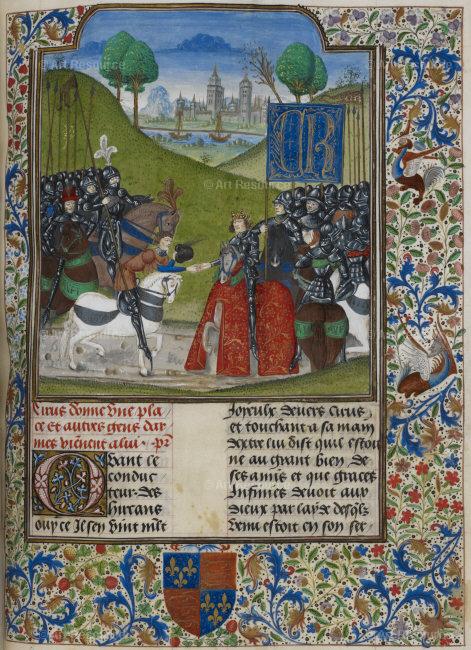 © Art Resource
© Art Resource
© Art Resource
Cirus donne une pla
ce et autres gens dar
mes viennent a lui
Quant le
conduc
teur des
hircans
ouy ce Jl sen vint
Joyeulx devers cirus
et touchant a sa main
dextre lui dist quil estoit
ne au grant bien de
ses amis et que graces
Infinies devoit aux
dieux par layde desqlz
venu estoit en son ser